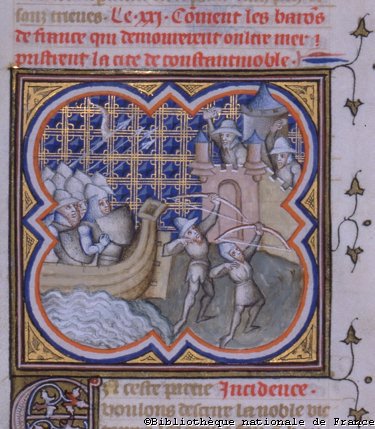 sanz trieves. Le .xxj. Coment les barōs
de france qui demourerent oultre mer
pristrent la cite de constantinoble.
En ceste partie Incidence.
voulons descrire la noble vic
©Bibliothèque nationale de France